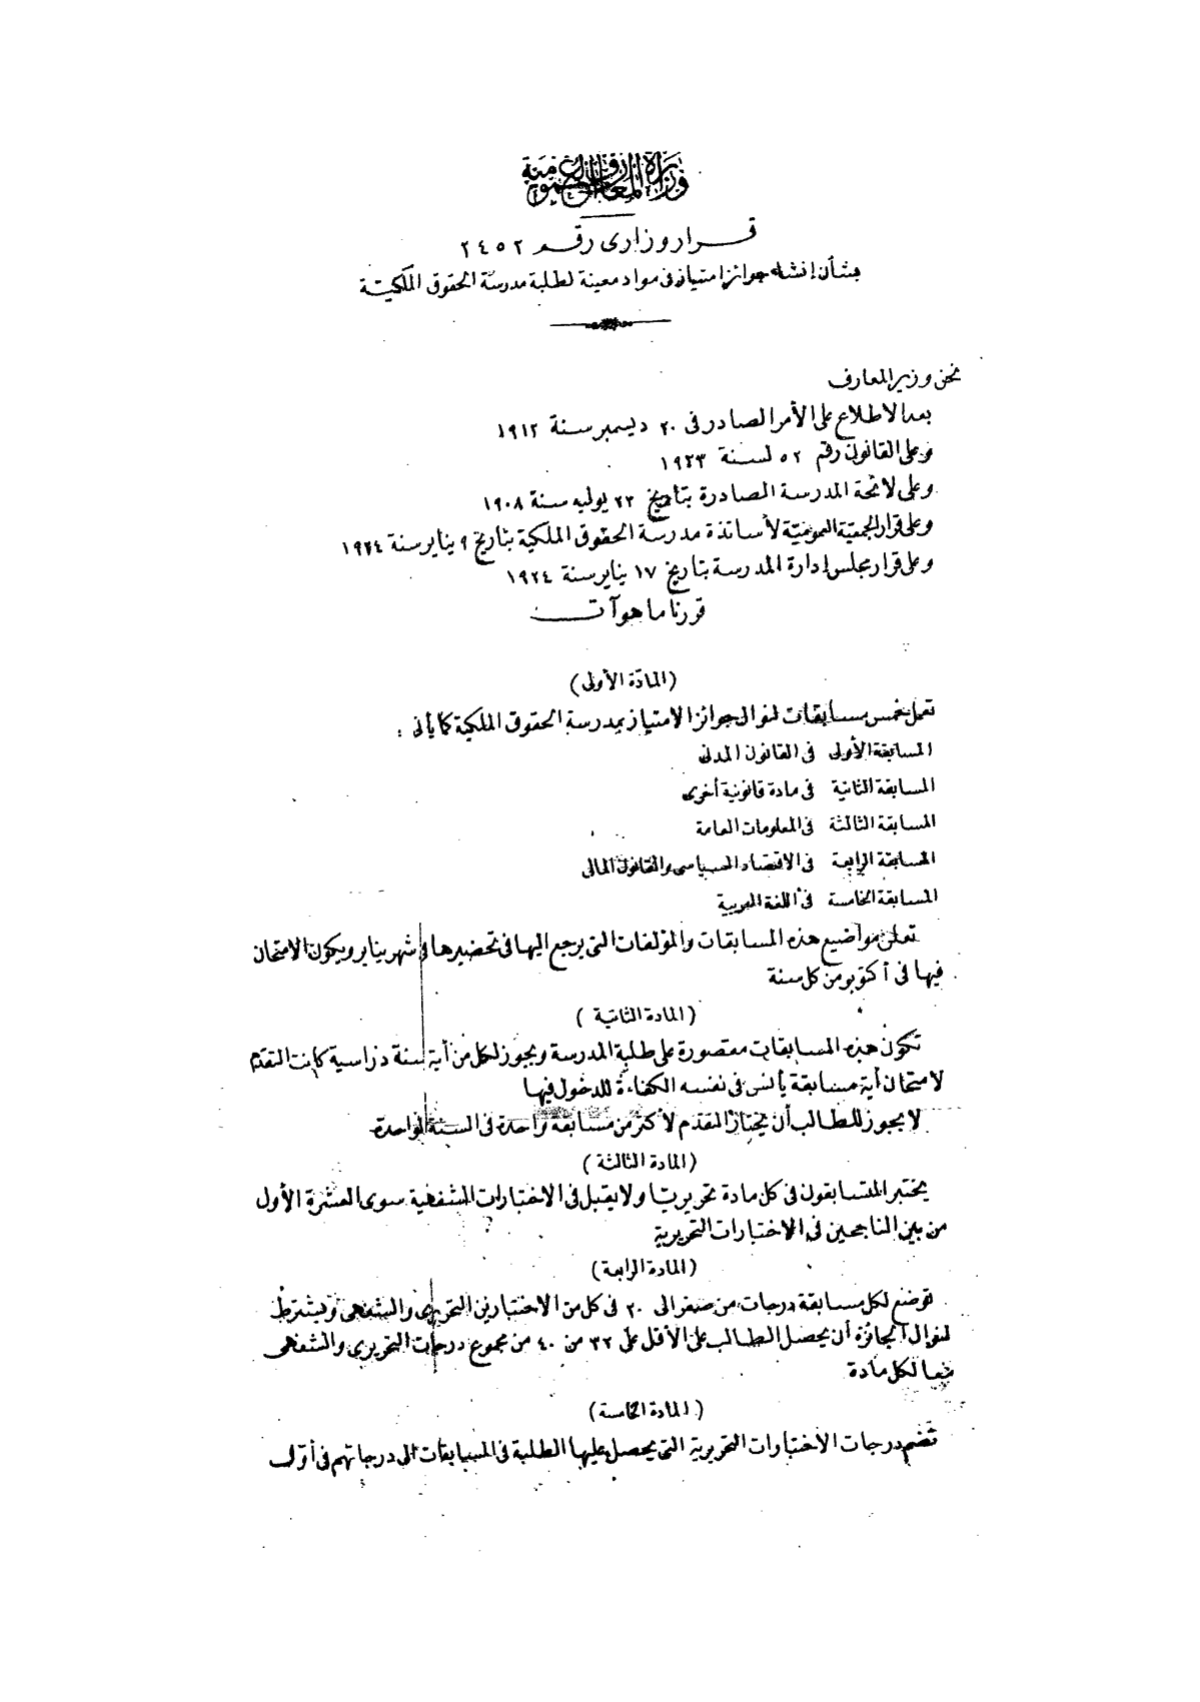 وزارة المعارف العمومية
قرار وزارى رقم ٢٤٥٢
بشأن إنشاء جوائز امتياز فى مواد معينة لطلبة مدرسة الحقوق الملكية
نحن وزير المعارف
بعد الاطلاع على الأمر الصادر فى ٢٠ ديسمبر سنة ١٩١٢
وعلى القانون رقم ٥٢ لسنة ١٩٢٣
وعلى لائحة المدرسة الصادرة بتاريخ ٢٣ يوليه سنة ١٩٠٨
وعلى قرار الجمعية العمومية لأساتذة مدرسة الحقوق الملكية بتاريخ ٩ يناير سنة ١٩٢٤
وعلى قرار مجلس إدارة المدرسة بتاريخ ١٧ يناير سنة ١٩٢٤
قررنا ما هو آت
(المادة الأولى)
تعمل خمس مسابقات لنوال جوائز الامتياز بمدرسة الحقوق الملكية كما يأتى :
المسابقة الأولى فى القانون المدنى
المسابقة الثانية فى مادة قانونية أخرى
المسابقة الثالثة فى المعلومات العامة
المسابقة الرابعة فى الاقتصاد السياسى والقانون المالى
المسابقة الخامسة فى اللغة العربية
تعلن مواضيع هذه المسابقات والمؤلفات التى يرجع اليها فى تحضيرها فى شهر يناير ويكون الامتحان
فيها فى أكتوبر من كل سنة
(المادة الثانية)
تكون هذه المسابقات مقصورة على طلبة المدرسة ويجوز لكل من أية سنة دراسية كانت التقدم
لامتحان أية مسابقة يأنس فى نفسه الكفاءة للدخول فيها
لا يجوز للطالب أن يختار التقدم لأكثر من مسابقة واحدة فى السنة الواحدة
(المادة الثالثة)
يختبر المتسابقون فى كل مادة تحريريا ولا يقبل فى الاختبارات الشفهية سوى العشرة الأول
من بين الناجحين فى الاختبارات التحريرية
(المادة الرابعة)
توضع لكل مسابقة درجات من صفر الى ٢٠ فى كل من الاختبارين التحريرى والشفهى ويشترط
لنوال الجائزة أن يحصل الطالب على الأقل على ٣٢ من ٤٠ من مجموع درجات التحريرى والشفهى
معا لكل مادة
(المادة الخامسة)
تضم درجات الاختبارات التحريرية التى يحصل عليها الطلبة فى المسابقات الى درجاتهم فى أول